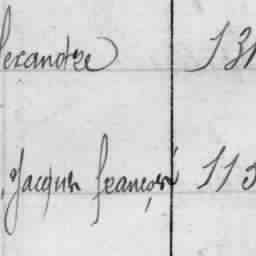 lexandre 131
, Jacques François 115